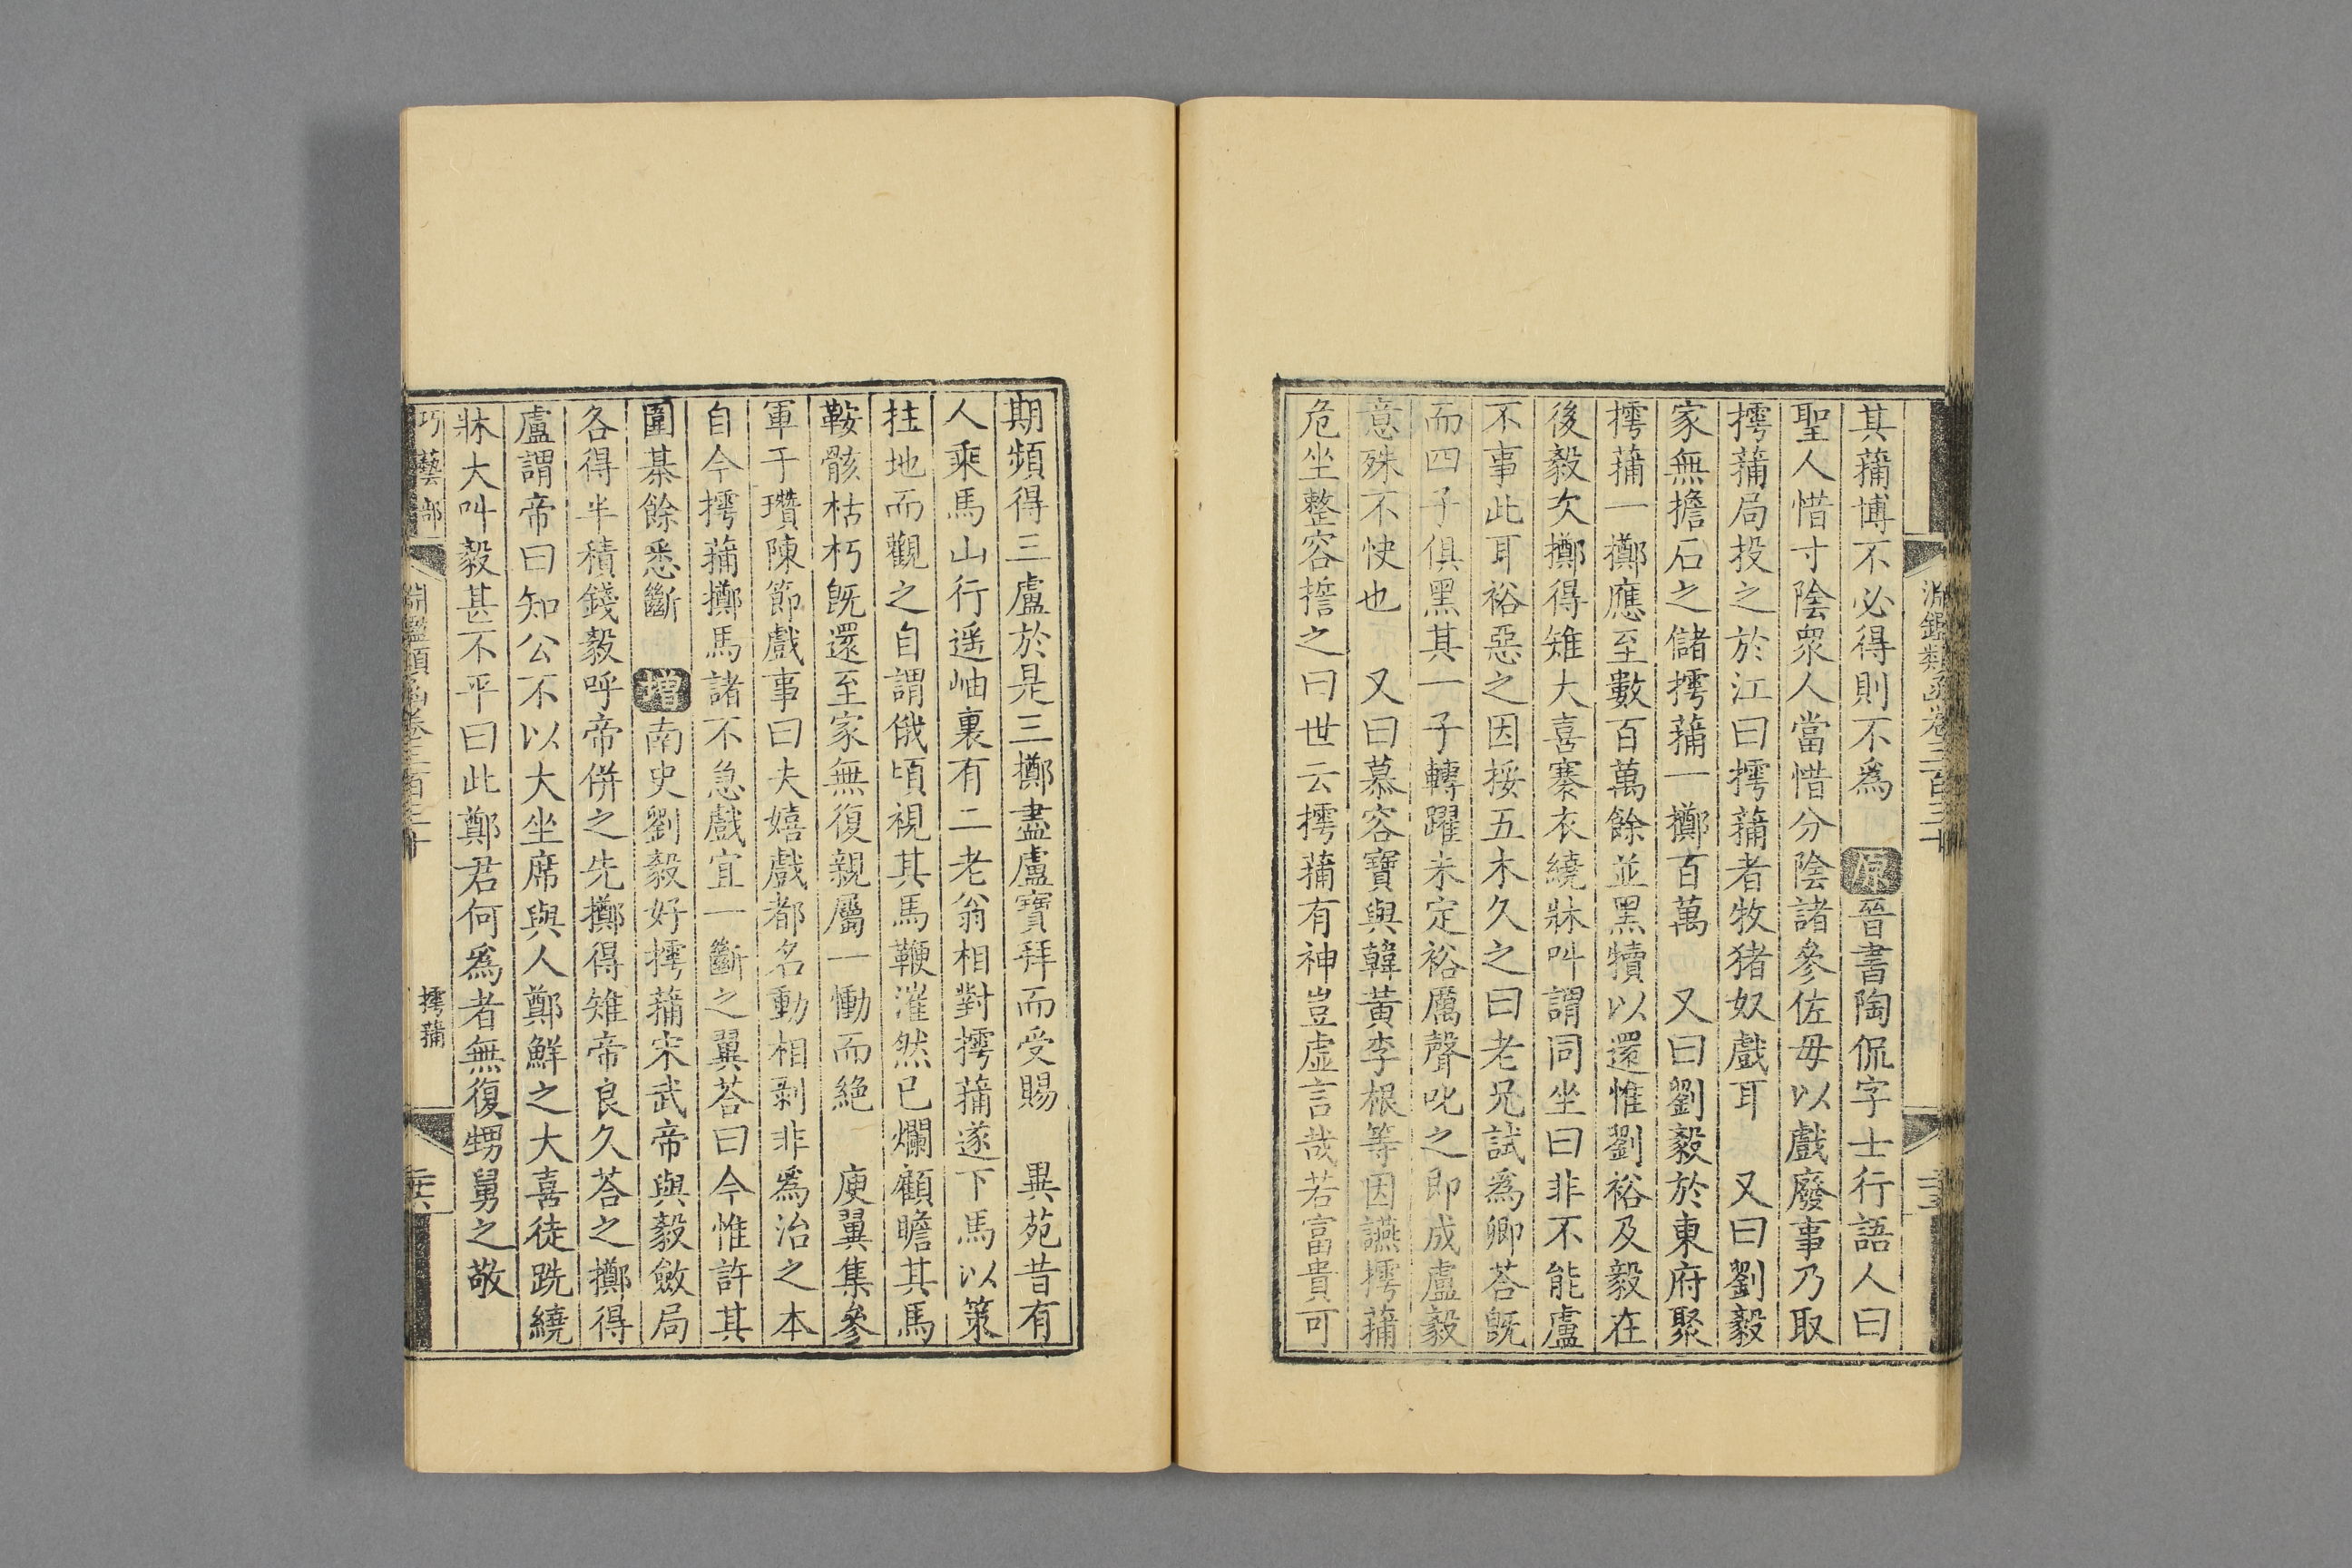 淵鑑類函卷三百三十
其蒱博不必得則不爲 原晉書陶侃字士行語人曰
聖人惜寸陰衆人當惜分陰諸參佐毋以戲廢事乃取
摴蒱局投之於江曰摴蒱者牧猪奴戲耳 又曰劉毅
家無擔石之儲摴蒱一擲百萬 又曰劉毅於東府聚
摴蒱一擲應至數百萬餘並黑犢以還惟劉裕及毅在
後毅次擲得雉大喜褰衣繞牀叫謂同坐曰非不能盧
不事此耳裕惡之因挼五木久之曰老兄試爲卿荅既
而四子俱黑其一子轉躍未定裕厲聲叱之即成盧毅
意殊不快也 又曰慕容寶與韓黃李根等因讌摴蒱
危坐整容誓之曰世云摴蒱有神豈虛言哉若富貴可
期頻得三盧於是三擲盡盧寶拜而受賜 異苑昔有
人乘馬山行遥岫裏有二老翁相對摴蒱遂下馬以策
拄地而觀之自謂俄頃視其馬鞭漼然已爛顧瞻其馬
鞍骸枯朽既還至家無復親屬一慟而絕 庾翼集參
軍于瓚陳節戲事曰夫嬉戲都名動相剥非爲治之本
自今摴蒱擲馬諸不急戲宜一斷之翼荅曰今惟許其
圍棊餘悉斷 增南史劉毅好摴蒱宋武帝與毅斂局
各得半積錢毅呼帝併之先擲得雉帝良久荅之擲得
盧謂帝曰知公不以大坐席與人鄭鮮之大喜徒跣繞
牀大叫毅甚不平曰此鄭君何爲者無復甥舅之敬
巧藝部 淵鑑類函卷三百三十 摴蒱 二十六